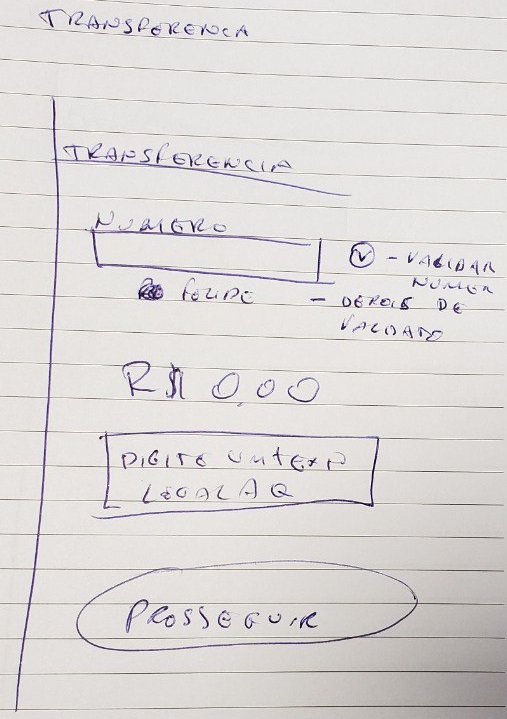 TRANSFERENCA
TRANSFERENCIA
NUMERO
V - VALIDAR
NUMER
FELIPE - DEPOIS DE
VALIDADO
R$ 0,00
DIGITE UM TEXTO
LEGAL AQ
PROSSEGUIR